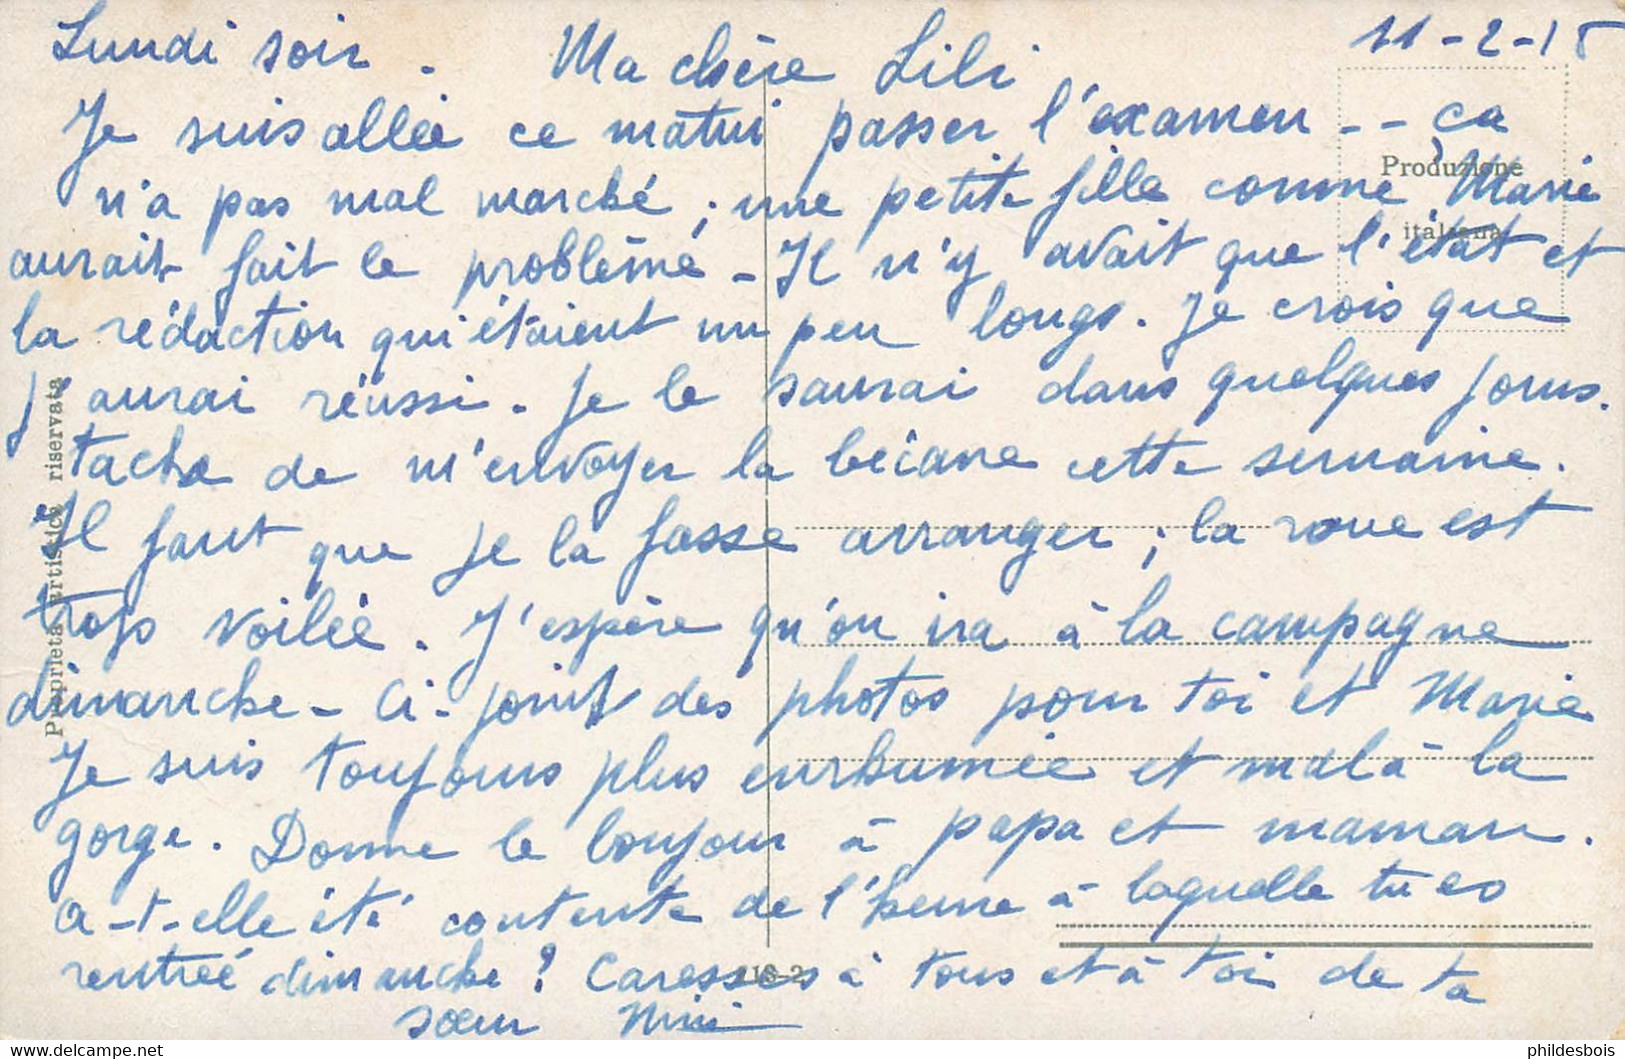 11-2-18
Lundi soir. Ma chère Lili
Je suis allée ce matin passer l'examen -- ça
n'a pas mal marché ; une petite fille comme Marie
aurait fait le problème - Il n'y avait que l'état et
la rédaction qui étaient un peu longs. Je crois que
j'aurai réussi. Je le saurai dans quelques jours.
tache de m'envoyer la bécane cette semaine.
Il faut que je la fasse arranger ; la roue est
trop voilée. J'espère qu'on ira à la campagne
dimanche - Ci-joint des photos pour toi et Marie
Je suis toujours plus enrhumée et mal à la
gorge. Donne le bonjour à papa et maman.
a-t-elle été contente de l'heure à laquelle tu es
rentrée dimanche ? Caresses à tous et à toi de ta
sœur Nini
Produzione
italiana
Proprietà artistica riservata
phildesbois